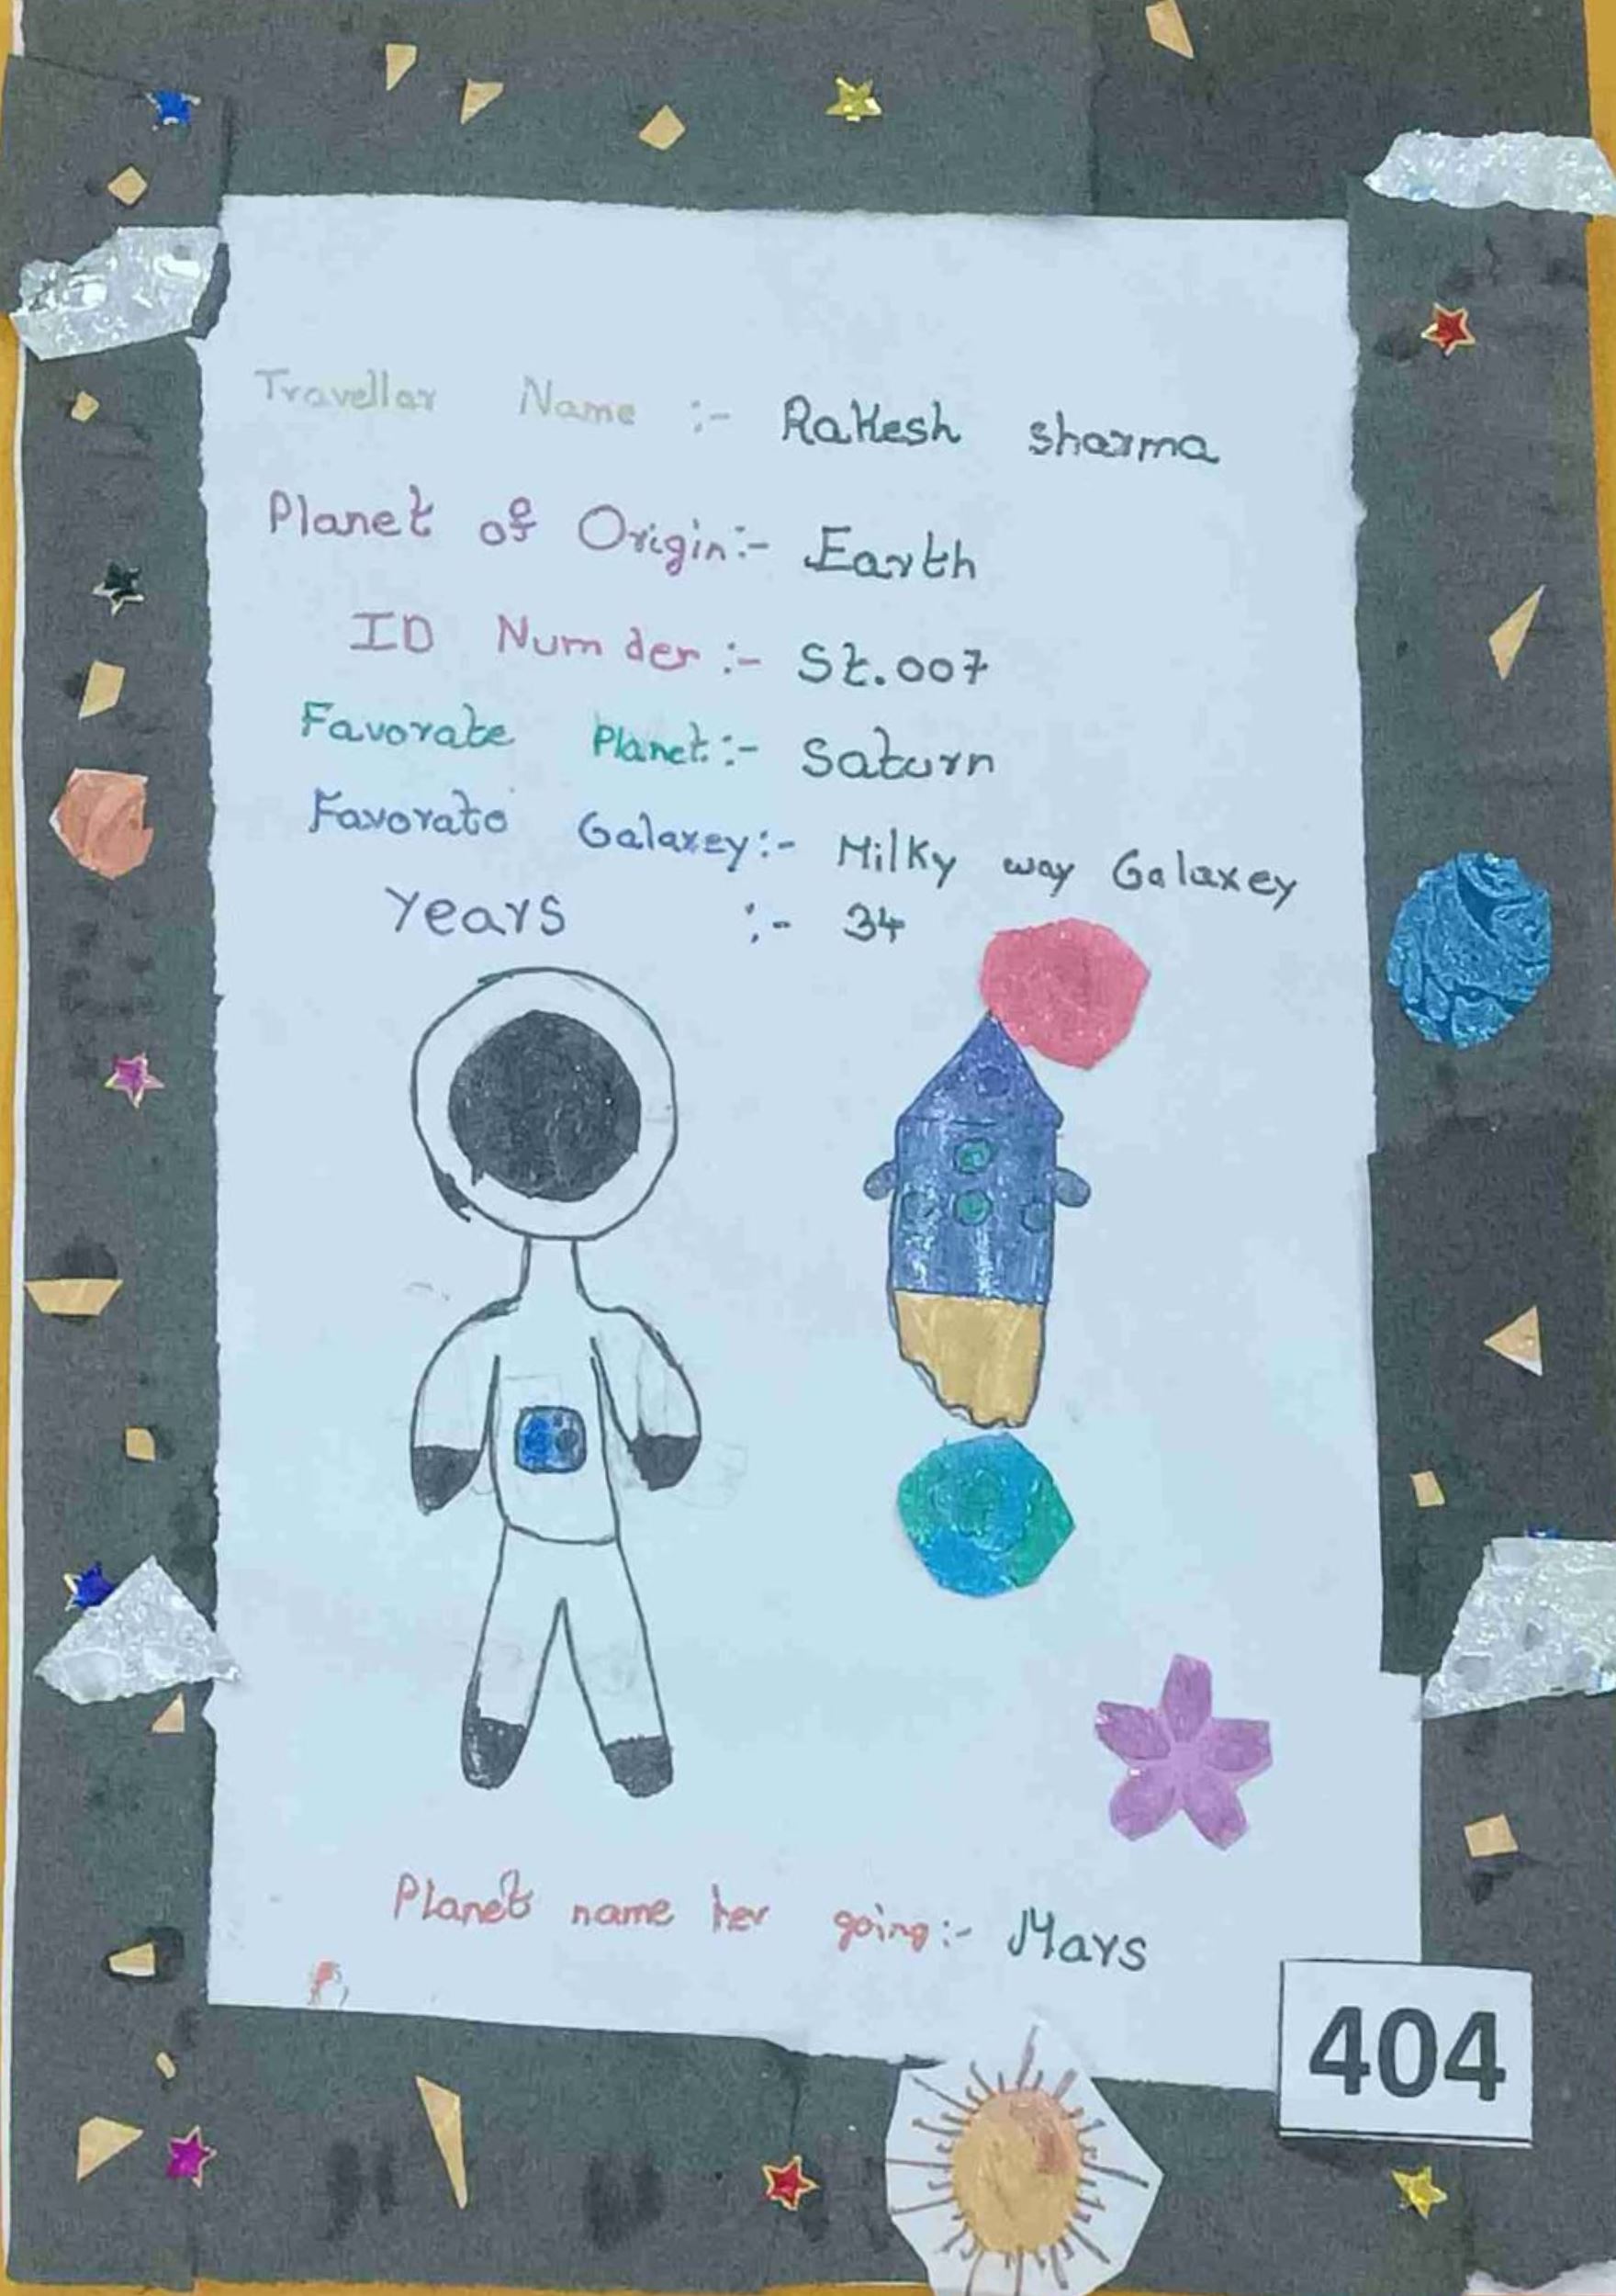 Travellar Name :- Rakesh sharma
Planet of Origin:- Earth
ID Numder :- St.007
Favorate Planet:- Saturn
Favorato Galaxey:- Milky way Galaxey
Years :- 34
Planet name her going:- Mars
404